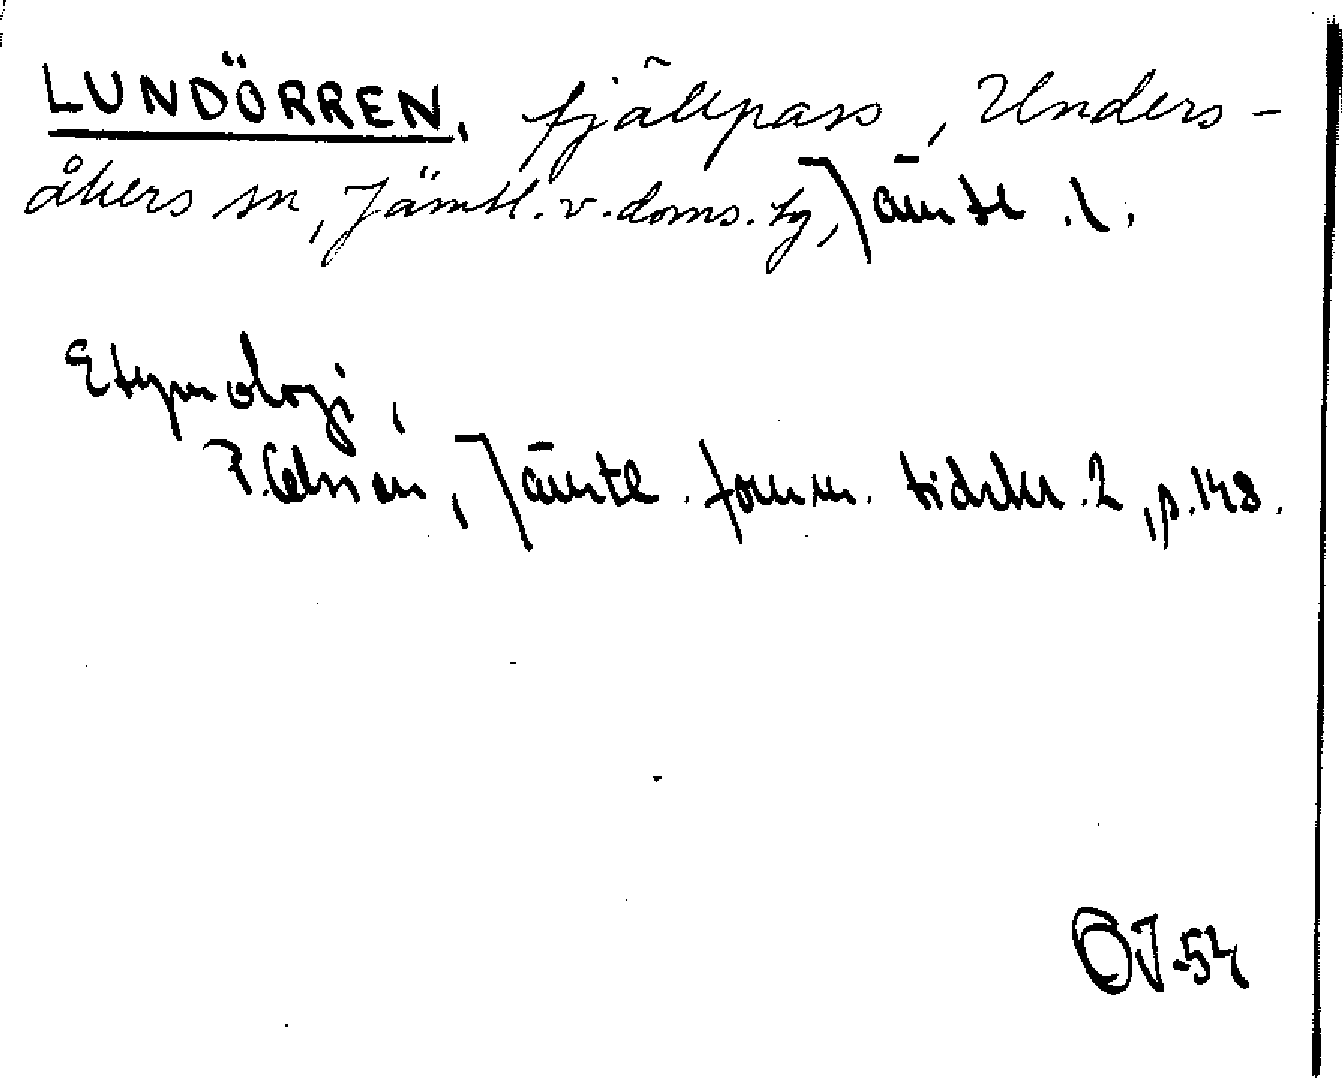 LUNDÖRREN, fjällpass, Unders-
åkers sn, Jämtl. v. doms. tg, Jämtl. l.
Etymologi,
P. Olsson, Jämtl. fornm. tidskr. 2, p. 148.
OJ-54